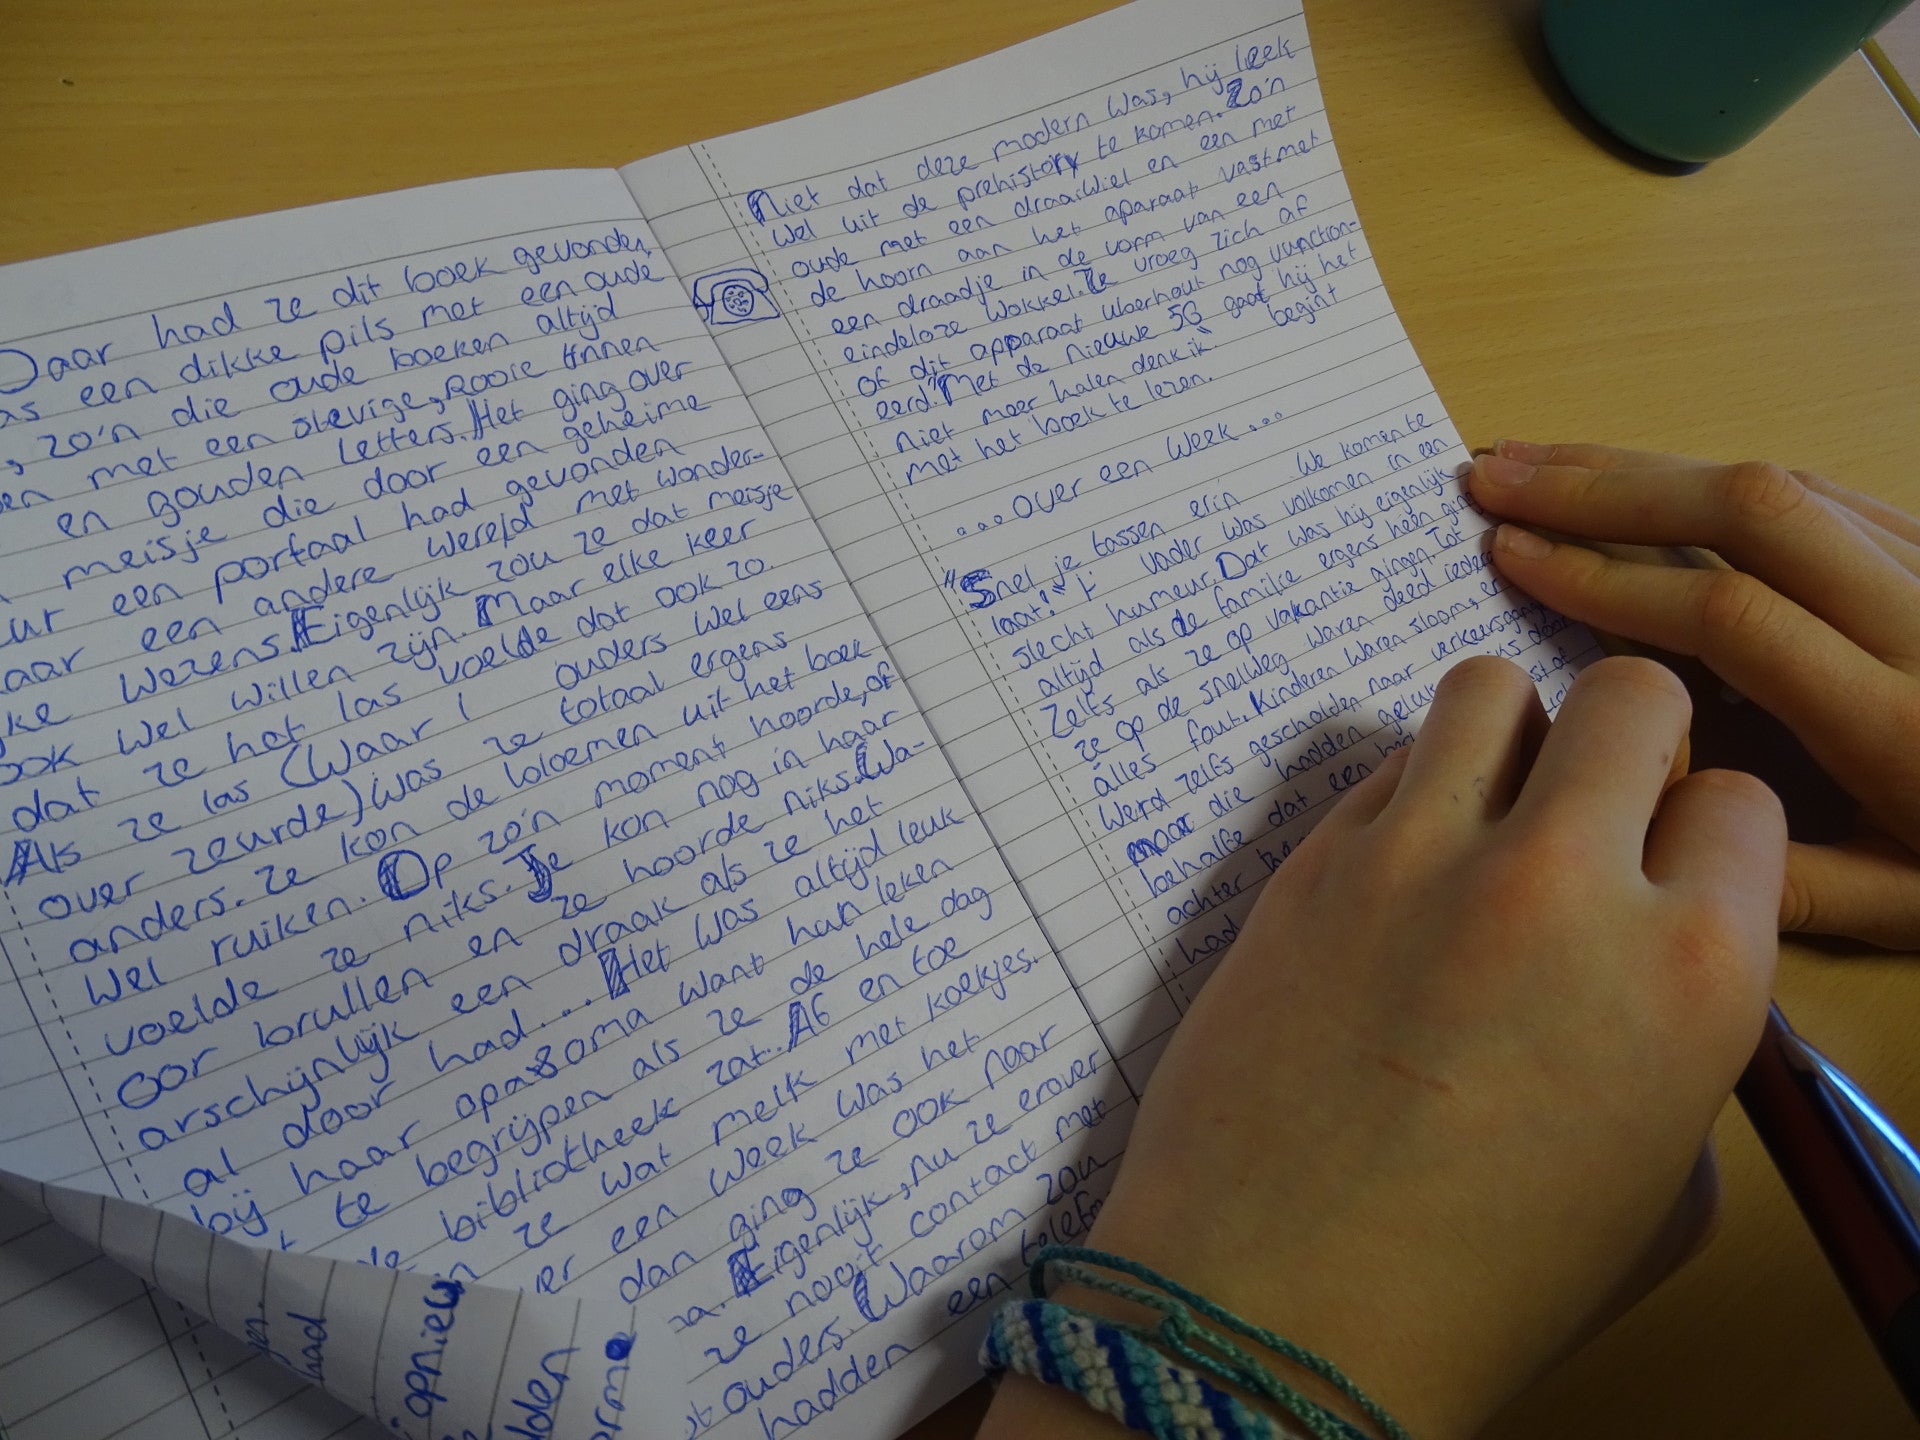 Daar had ze dit boek gevonden,
as een dikke pils met een oude
, zo'n die oude boeken altijd
en met een stevige, rooie linnen
en gouden letters. Het ging over
meisje die door een geheime
ur een portaal had gevonden
aar een andere wereld met wonder-
ke wezens. Eigenlijk zou ze dat meisje
ook wel willen zijn. Maar elke keer
dat ze het las voelde dat ook zo.
Als ze las (Waar ouders wel eens
over zeurde) was ze totaal ergens
anders. Ze kon de bloemen uit het boek
wel ruiken. Op zo'n moment hoorde, of
voelde ze niks. Je kon nog in haar
oor brullen en ze hoorde niks. Wa-
arschijnlijk een draak als ze het
al door had... Het was altijd leuk
bij haar opa&oma want hun leken
te begrijpen als ze de hele dag
bibliotheek zat. Af en toe
ze wat melk met koekjes.
er een week was het
dan ging ze ook naar
Eigenlijk, nu ze erover
ze nooit contact met
ouders. Waarom zou
hadden een telef
opnieuw
had
lden
orme
Niet dat deze modern was, hij leek
wel uit de prehistory te komen. Zo'n
oude met een draaiwiel en een met
de hoorn aan het aparaat vast met
een draadje in de vorm van een
eindeloze wokkel. Ze vroeg zich af
of dit apparaat uberhout nog vunction-
eerd. "Met de nieuwe 5G gaat hij het
niet meer halen denk ik". begint
met het boek te lezen.
...over een week...
"Snel je tassen erin We komen te
laat!" vader was volkomen in een
slecht humeur. Dat was hij eigenlijk
altijd als de familie ergens heen ging
Zelfs als ze op vakantie gingen. Tot
ze op de snelweg waren deed ieder
alles fout. Kinderen waren sloom, er
werd zelfs gescholden naar verkeers
maar die hadden geluk
behalfe dat een
achter
had